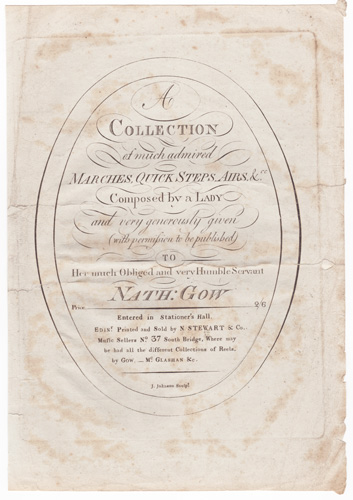 A
COLLECTION
of much admired
MARCHES, QUICK STEPS, AIRS, &cc
Composed by a LADY
and very generously given
(with permission to be published)
TO
Her much Obliged and very Humble Servant
NATH: GOW
Price 2/6
Entered in Stationer's Hall.
EDINr. Printed and Sold by N. STEWART & Co.
Music Sellers No. 37 South Bridge, Where may
be had all the different Collections of Reels,
by GOW — Mc. GLASHAN &c.
J. Johnson Sculpt.